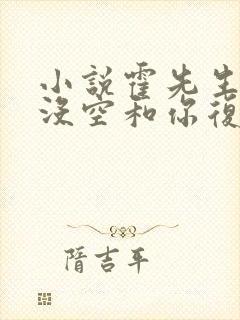 小說霍先生
沒空和你復
隋吉平